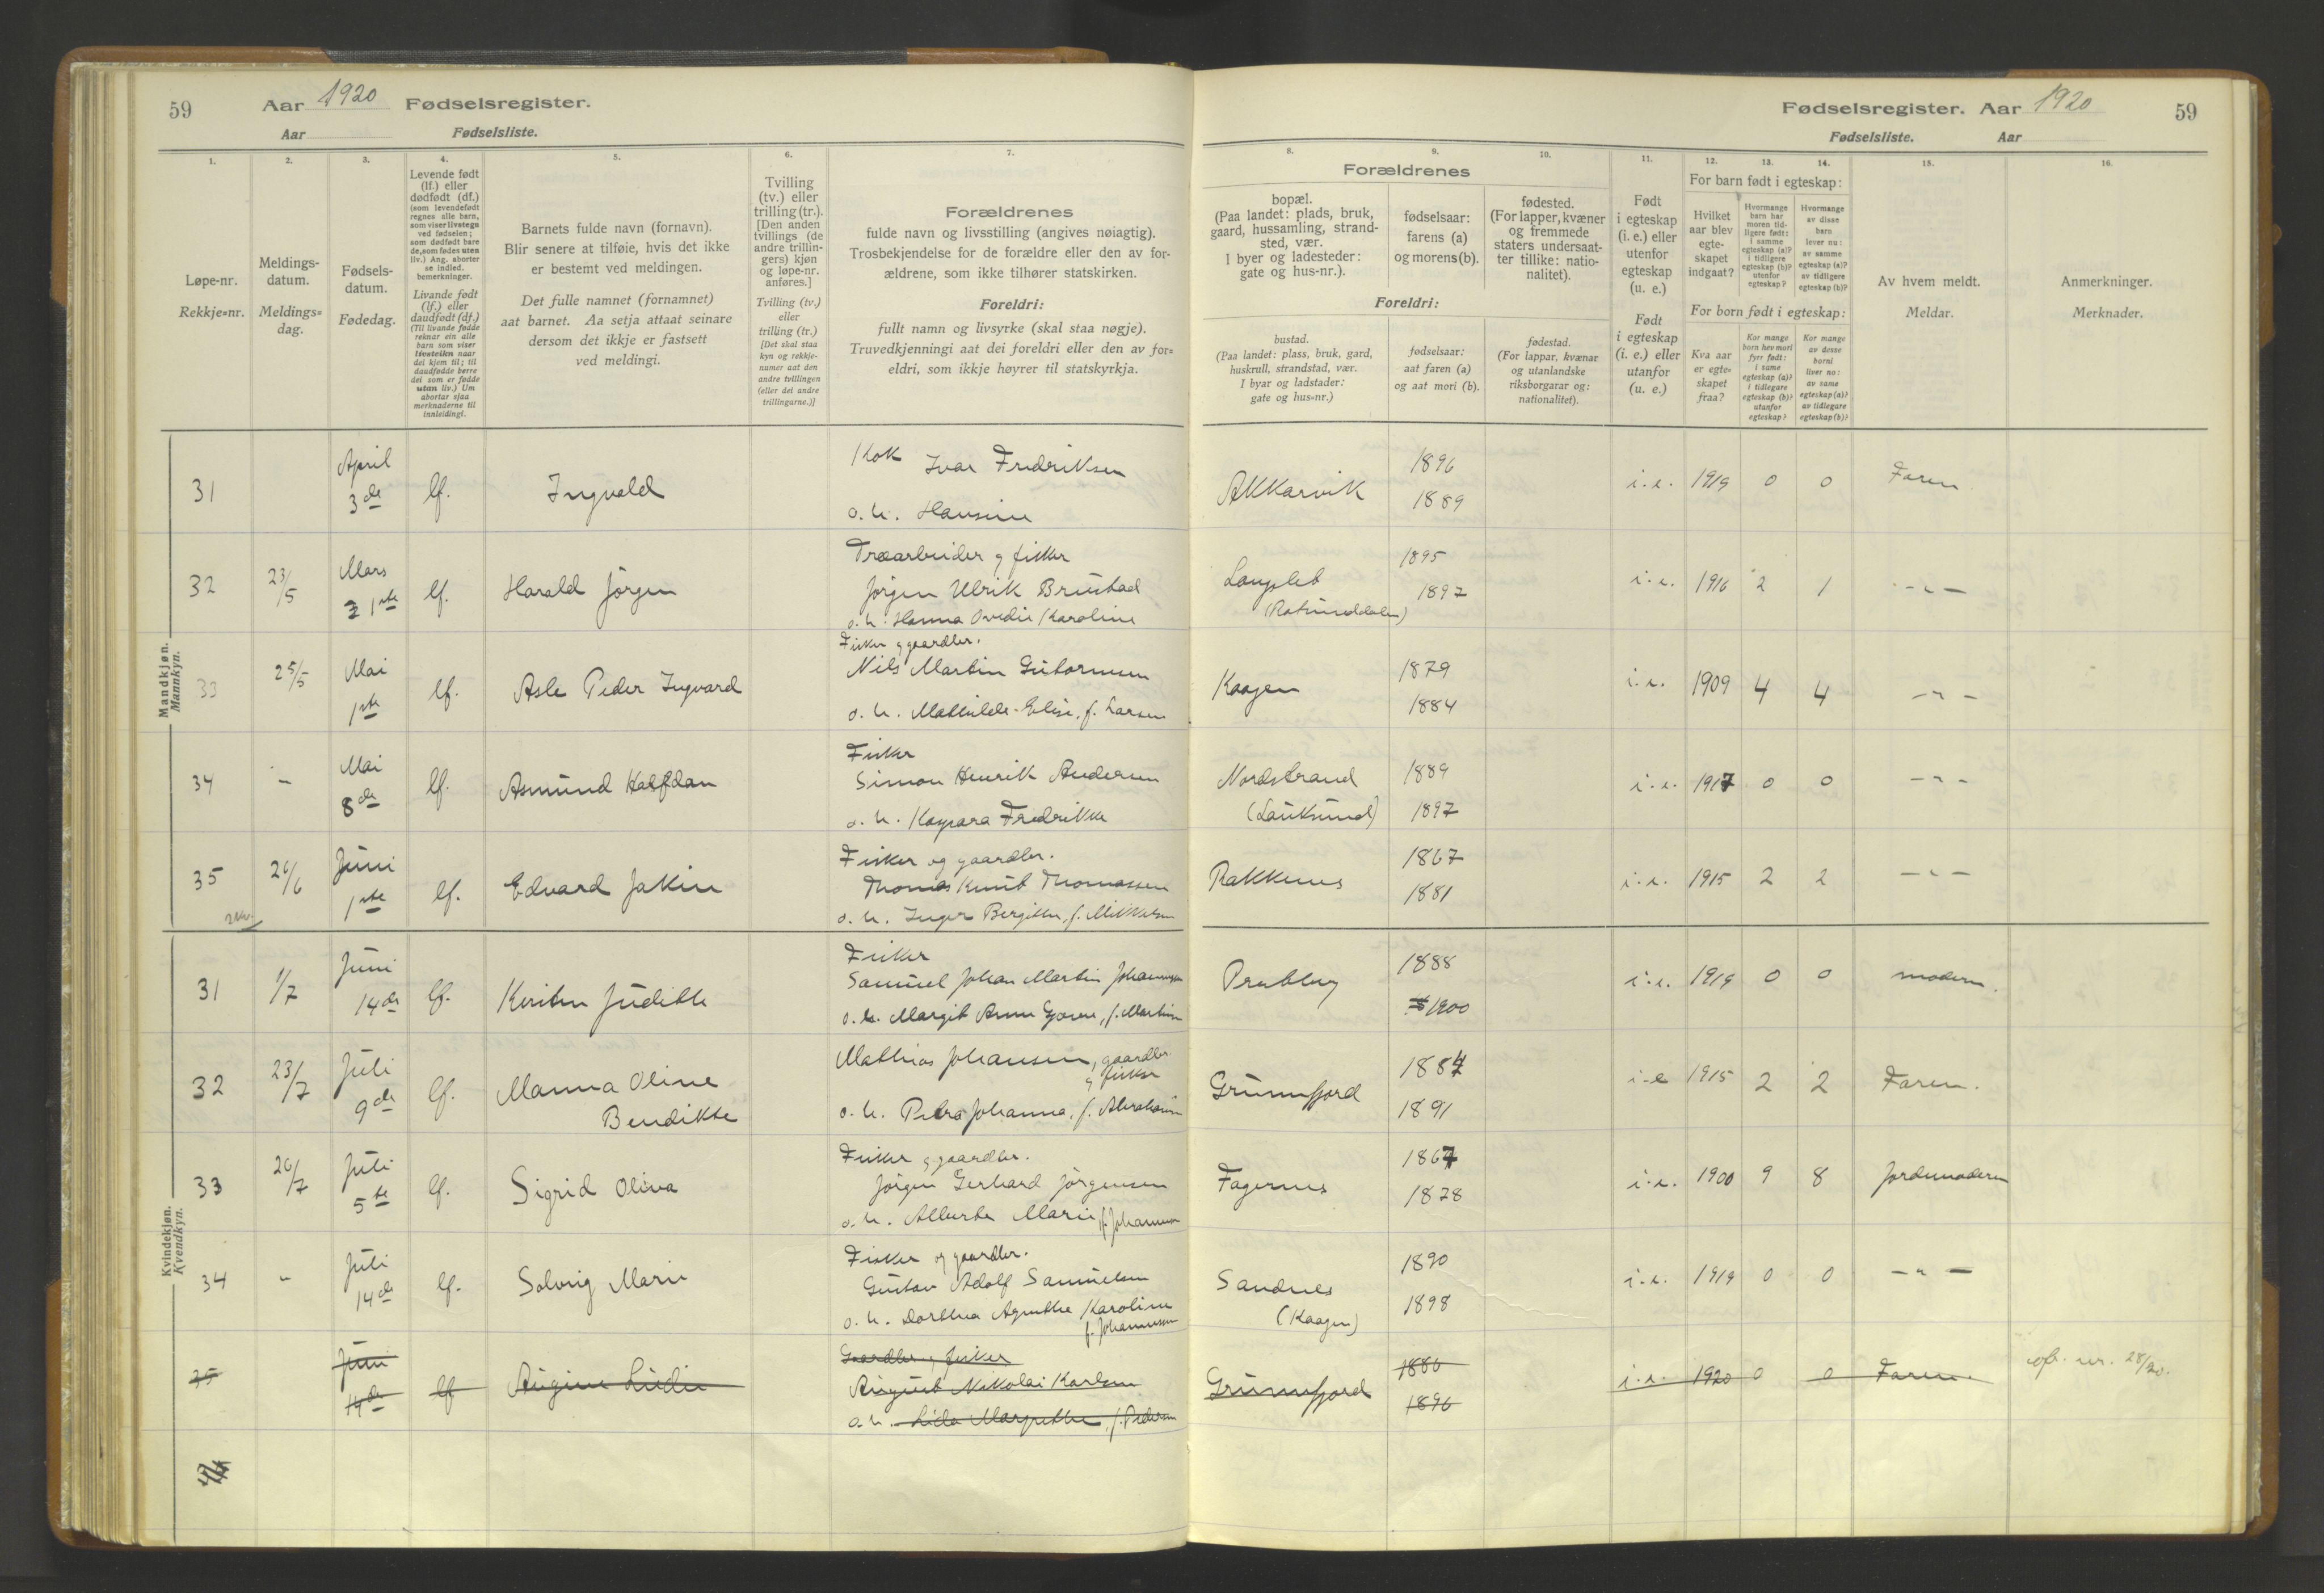 59 Aar 1920 Fødselsregister.
Aar Fødselsliste.
1. 2. 3. 4. 5. 6. 7.
Løpe-nr.
Rekkje=nr.
Meldings-
datum.
Meldings=
dag.
Fødsels-
datum.
Fødedag.
Levende født
(lf.) eller
dødfødt (df.)
(som levendefødt
regnes alle barn,
som viser livstegn
ved fødselen;
som dødfødt bare
de, som fødes uten
liv.) Ang. aborter
se indled.
bemerkninger.
Livande født
(lf.) eller
daudfødt (df.)
(Til livande fødde
reknar ein alle
barn som viser
livsteikn naar
dei kjem til; til
daudfødde berre
dei som er fødde
utan liv.) Um
abortar sjaa
merknaderne til
innleidingi.
Barnets fulde navn (fornavn).
Blir senere at tilføie, hvis det ikke
er bestemt ved meldingen.
Det fulle namnet (fornamnet)
aat barnet. Aa setja attaat seinare
dersom det ikkje er fastsett
ved meldingi.
Tvilling
(tv.) eller
trilling (tr.).
[Den anden
tvillings (de
andre trillin-
gers) kjøn
og løpe-nr.
anføres.]
Tvilling (tv.)
eller
trilling (tr.)
[Det skal staa
kyn og rekkje-
numer aat den
andre tvillingen
(eller dei andre
trillingarne.)]
Forældrenes
fulde navn og livsstilling (angives nøiagtig).
Trosbekjendelse for de forældre eller den av for-
ældrene, som ikke tilhører statskirken.
Foreldri:
fullt namn og livsyrke (skal staa nøgje).
Truvedkjenningi aat dei foreldri eller den av for=
eldri, som ikkje høyrer til statskyrkja.
Mandkjøn.
Mannkyn.
31 April 3de lf. Ingvald
Kok Ivar Fredriksen
o. h. Hansine
32 23/5 Mars 21ste lf. Harald Jørgen
Træarbeider og fisker
Jørgen Ulrik Brustad
o. h. Hanna Ovedie Karoline
33 25/5 Mai 1ste lf. Asle Peder Ingvard
Fisker og gaardbr.
Nils Martin Gutormsen
o. h. Mathilde Elise, f. Larsen
34 - Mai 8de lf. Asmund Halfdan
Fisker
Simon Henrik Andersen
o. h. Kaspara Fredrikke
35 26/6 Juni 1ste lf. Edvard Jakin
Fisker og gaardbr.
Thomas Knut Thomassen
o. h. Inger Bergitte, f. Mikkelsen
Kvindekjøn.
Kvendkyn.
31 1/7 Juni 14de lf. Kirsten Judithe
Fisker
Samuel Johan Martin Johannesen
o. h. Margit Anne, f. Martinsen
32 23/7 Juli 9de lf. Manna Oline
Bendikte
Mathias Johansen, gaardbr.
og fisker
o. h. Petra Johanna, f. Abrahamsen
33 26/7 Juli 5te lf. Sigrid Oliva
Fisker og gaardbr.
Jørgen Gerhard Jørgensen
o. h. Alberte Marie f. Johannesen
34 - Juli 14de lf. Solveig Marie
Fisker og gaardbr.
Gustav Adolf Samuelsen
o. h. Dorthea Agnethe Karoline
f. Johannessen
35 Juni 14de lf Augine Lidie
Gaardbr og fisker
August Nikolai Karlsen
o. h. Lida Margrethe, f. Pedersen
Fødselsregister. Aar 1920 59
Fødselsliste. Aar
8. 9. 10. 11. 12. 13. 14. 15. 16.
Forældrenes
bopæl.
(Paa landet: plads, bruk,
gaard, hussamling, strand-
sted, vær.
I byer og ladesteder:
gate og hus-nr.).
fødselsaar:
farens (a)
og morens (b).
fødested.
(For lapper, kvæner
og fremmede
staters undersaat-
ter tillike: natio-
nalitet).
Foreldri:
bustad.
(Paa landet: plass, bruk, gard,
huskrull, strandstad, vær.
I byar og ladstader:
gate og hus=nr.)
fødselsaar:
aat faren (a)
og aat mori (b).
fødestad.
(For lappar, kvænar
og utanlandske
riksborgarar og:
nationalitet).
Født
i egteskap
(i. e.) eller
utenfor
egteskap
(u. e.)
Født
i egteskap
(i. e.) eller
utanfor
(u. e.)
For barn født i egteskap:
Hvilket
aar blev
egte-
skapet
indgaat?
Hvormange
barn har
moren tid-
ligere født:
i samme
egteskap (a)?
i tidligere
egteskap (b)?
utenfor
egteskap?
Hvormange
av disse
barn
lever nu:
av samme
egteskap (a)?
av tidligere
egteskap (b)?
For born født i egteskap:
Kva aar
er egte=
skapet
fraa?
Kor mange
born hev mori
fyrr født:
i same
egteskap (a)?
i tidlegare
egteskap (b)?
utanfor
egteskap?
Kor mange
av desse
borni
liver no:
av same
egteskap (a)?
av tidlegare
egteskap (b)?
Av hvem meldt.
Meldar.
Anmerkninger.
Merknader.
Akkarvik 1896 1889 i.e. 1919 0 0 Faren
Langslet (Rotsunddalen) 1895 1897 i.e. 1916 2 1 -"-
Kaagen 1879 1884 i.e. 1909 4 4 -"-
Nordstrand (Lauksund) 1889 1897 i.e. 1917 0 0 -"-
Rakkenes 1867 1881 i.e. 1915 2 2 -"-
1888 1900 i.e. 1919 0 0 moderen.
Grunnfjord 1884 1891 i.e 1915 2 2 Faren.
Fagernes 1867 1878 i.e. 1900 9 8 Jordmoderen
Sandnes (Kaagen) 1890 1898 i.e. 1919 0 0 -"-
Grunnfjord 1886 1896 i.e. 1920 0 0 Faren. cfr. nr. 28/20.